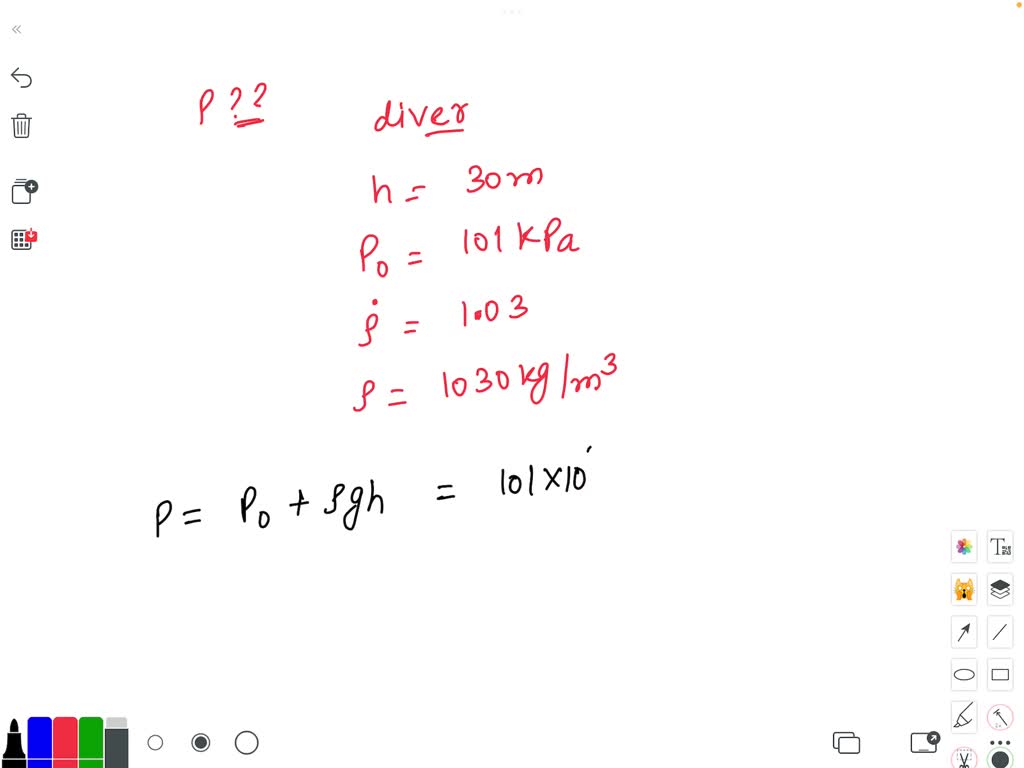 P ??
diver
h = 30m
P₀ = 101 kPa
ρ̇ = 1.03
ρ = 1030 kg/m³
P = P₀ + ρgh = 101×10